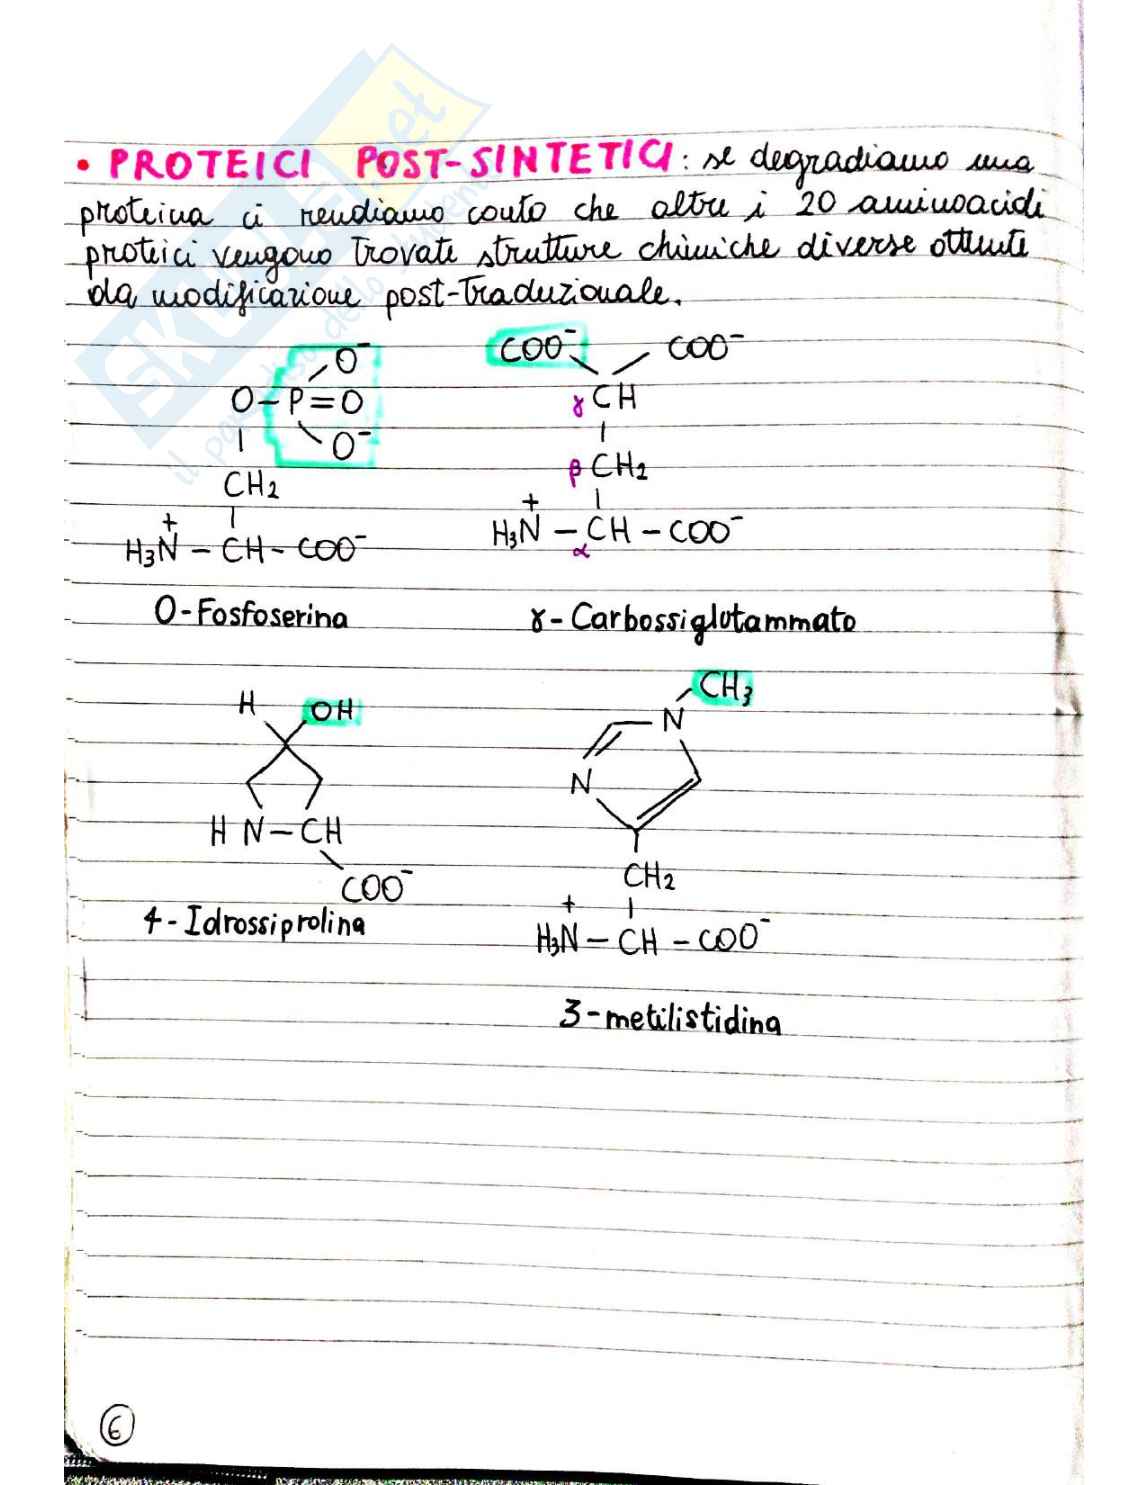 • PROTEICI POST-SINTETICI: se degradiamo una
proteina ci rendiamo conto che oltre i 20 aminoacidi
proteici vengono trovate strutture chimiche diverse ottenute
da modificazione post-traduzionale.
O⁻
O-P=O
O⁻
CH₂
H₃N⁺ - CH - COO⁻
O-Fosfoserina
COO⁻ COO⁻
γ CH
β CH₂
H₃N⁺ - CH - COO⁻
α
γ-Carbossiglutammato
H OH
H N - CH
COO⁻
4-Idrossiprolina
CH₃
N
N
CH₂
H₃N⁺ - CH - COO⁻
3-metilistidina
6
SKUOLA.net
il paradiso dello studente